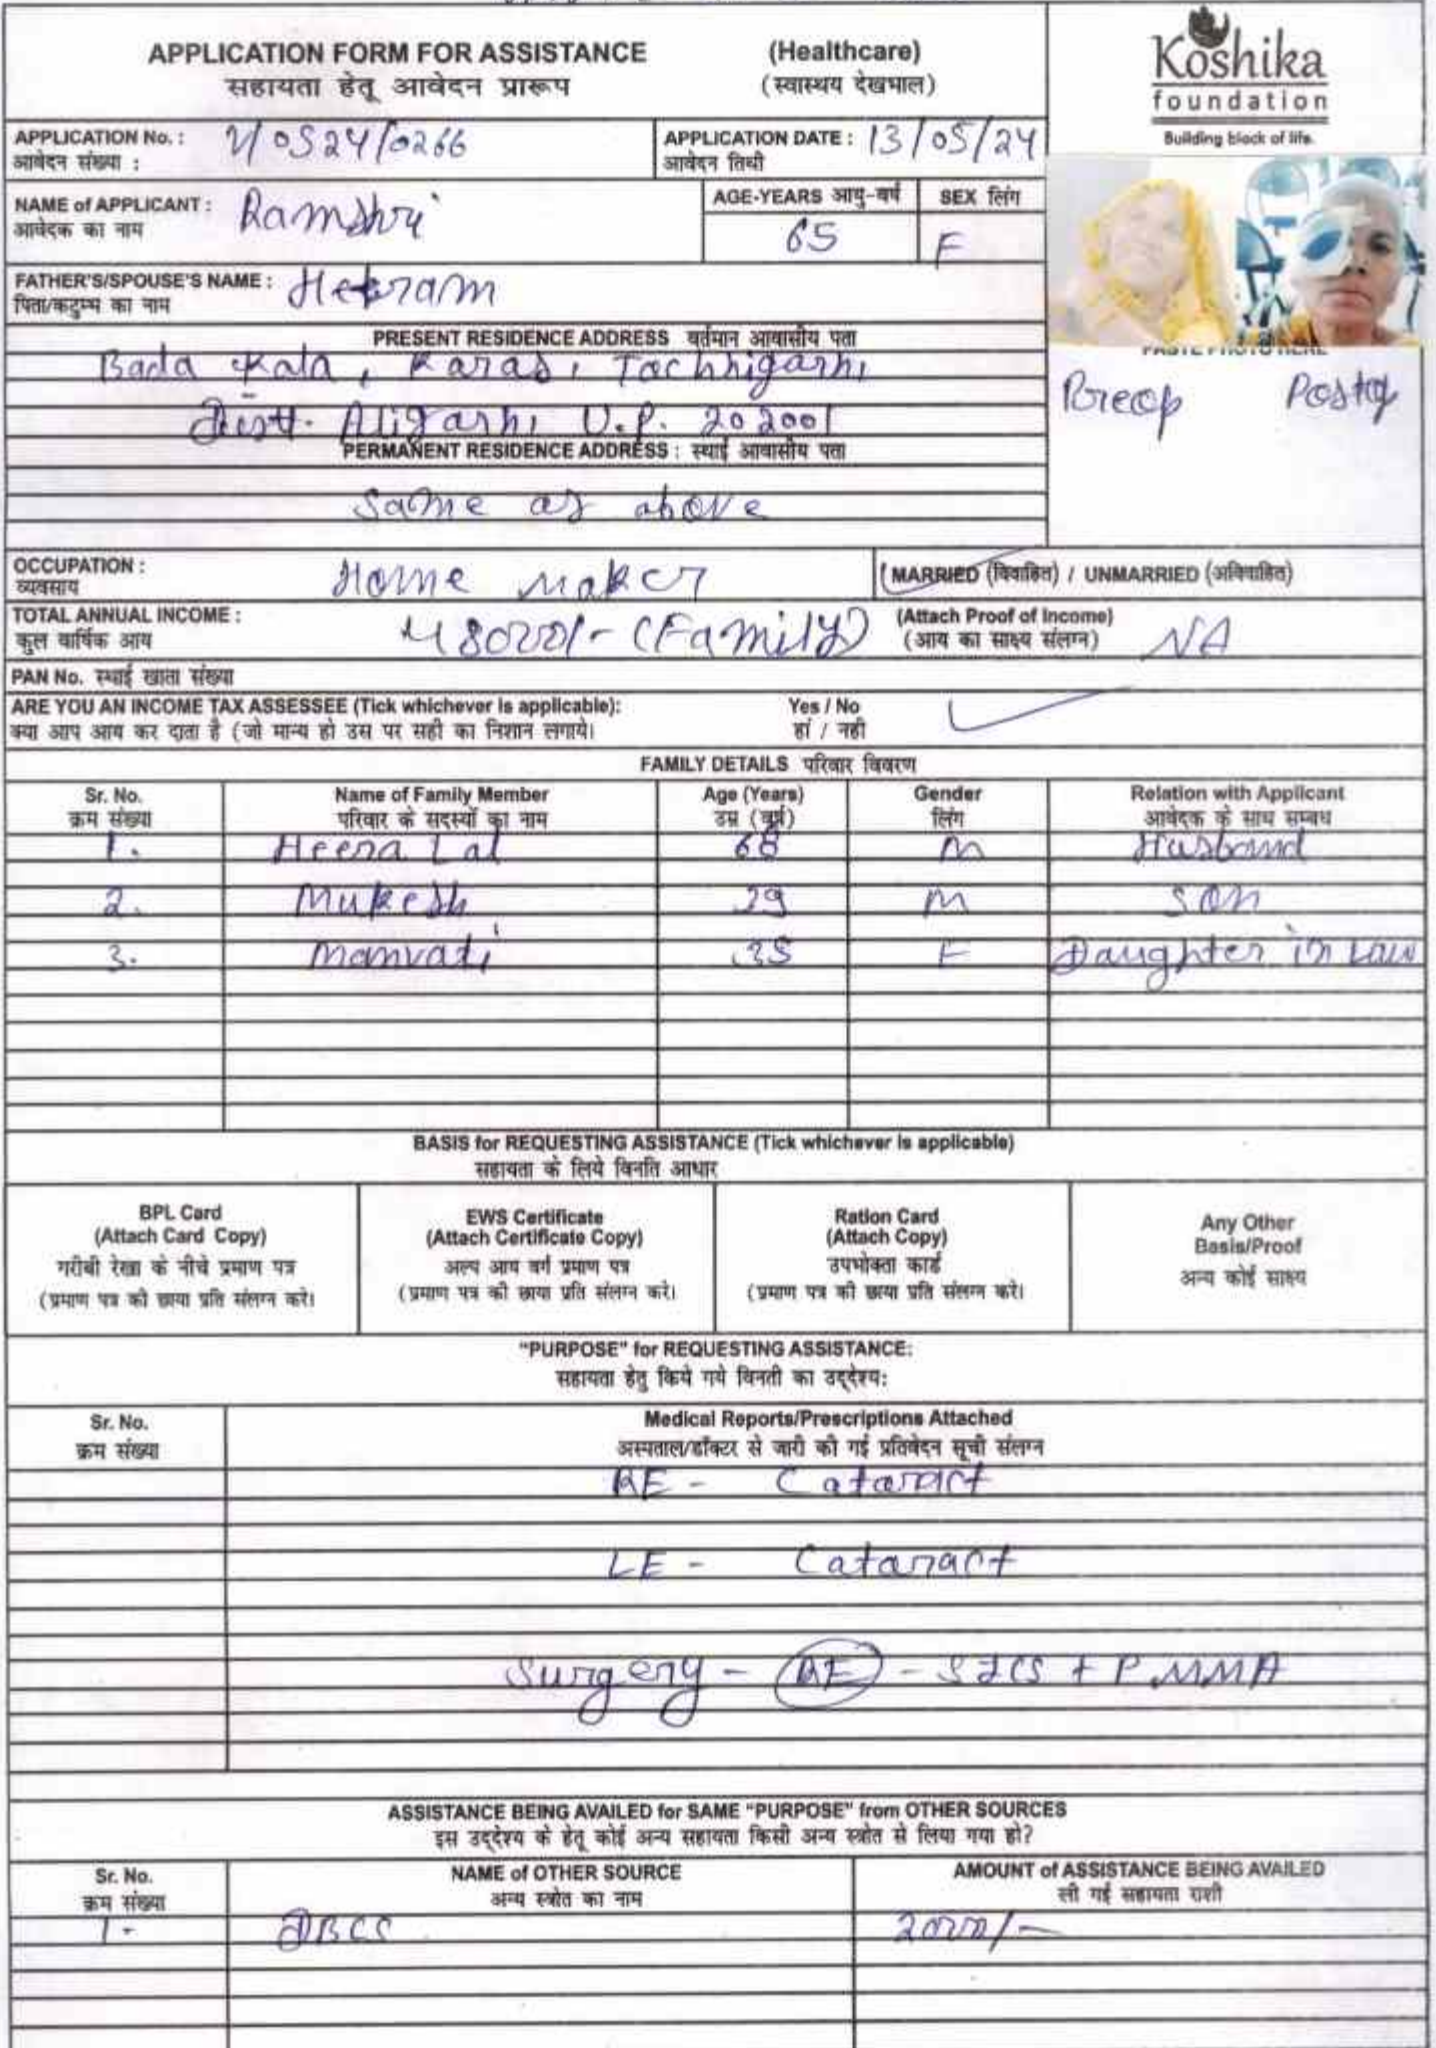 APPLICATION FORM FOR ASSISTANCE (Healthcare)
सहायता हेतू आवेदन प्रारूप (स्वास्थय देखभाल)
Koshika
foundation
Building block of life.
APPLICATION No. : /0524/0266
आवेदन संख्या :
APPLICATION DATE : 13/05/24
आवेदन तिथी
NAME of APPLICANT : Ramshri
आवेदक का नाम
AGE-YEARS आयु-वर्ष
65
SEX लिंग
F
FATHER'S/SPOUSE'S NAME : Heeram
पिता/कटुम्भ का नाम
PASTE PHOTO HERE
Preop Postop
PRESENT RESIDENCE ADDRESS वर्तमान आवासीय पता
Bada Kala, Karas, Tochhigarh,
Distt. Aligarh, U.P. 202001
PERMANENT RESIDENCE ADDRESS : स्थाई आवासीय पता
Same as above
OCCUPATION : Home Maker
व्यवसाय
MARRIED (विवाहित) / UNMARRIED (अविवाहित)
TOTAL ANNUAL INCOME : 48000/- (Family)
कुल वार्षिक आय
(Attach Proof of Income) NA
(आय का साक्ष्य संलग्न)
PAN No. स्थाई खाता संख्या
ARE YOU AN INCOME TAX ASSESSEE (Tick whichever is applicable): Yes / No
क्या आप आय कर दाता है (जो मान्य हो उस पर सही का निशान लगाये। हां / नही
FAMILY DETAILS परिवार विवरण
Sr. No. Name of Family Member Age (Years) Gender Relation with Applicant
क्रम संख्या परिवार के सदस्यों का नाम उम्र (वर्ष) लिंग आवेदक के साथ सम्बध
1. Heera Lal 68 M Husband
2. Mukesh 39 M Son
3. Manvati 35 F Daughter in Law
BASIS for REQUESTING ASSISTANCE (Tick whichever is applicable)
सहायता के लिये विनति आधार
BPL Card
(Attach Card Copy)
गरीबी रेखा के नीचे प्रमाण पत्र
(प्रमाण पत्र की छाया प्रति संलग्न करे।
EWS Certificate
(Attach Certificate Copy)
अल्प आय वर्ग प्रमाण पत्र
(प्रमाण पत्र की छाया प्रति संलग्न करे।
Ration Card
(Attach Copy)
उपभोक्ता कार्ड
(प्रमाण पत्र की छाया प्रति संलग्न करे।
Any Other
Basis/Proof
अन्य कोई साक्ष्य
"PURPOSE" for REQUESTING ASSISTANCE:
सहायता हेतु किये गये विनती का उद्देश्य:
Sr. No. Medical Reports/Prescriptions Attached
क्रम संख्या अस्पताल/डॉक्टर से जारी की गई प्रतिवेदन सूची संलग्न
RE - Cataract
LE - Cataract
Surgery - RE - SICS + PMMA
ASSISTANCE BEING AVAILED for SAME "PURPOSE" from OTHER SOURCES
इस उद्देश्य के हेतू कोई अन्य सहायता किसी अन्य स्त्रोत से लिया गया हो?
Sr. No. NAME of OTHER SOURCE AMOUNT of ASSISTANCE BEING AVAILED
क्रम संख्या अन्य स्त्रोत का नाम ली गई सहायता राशी
1- DBCS 2000/-